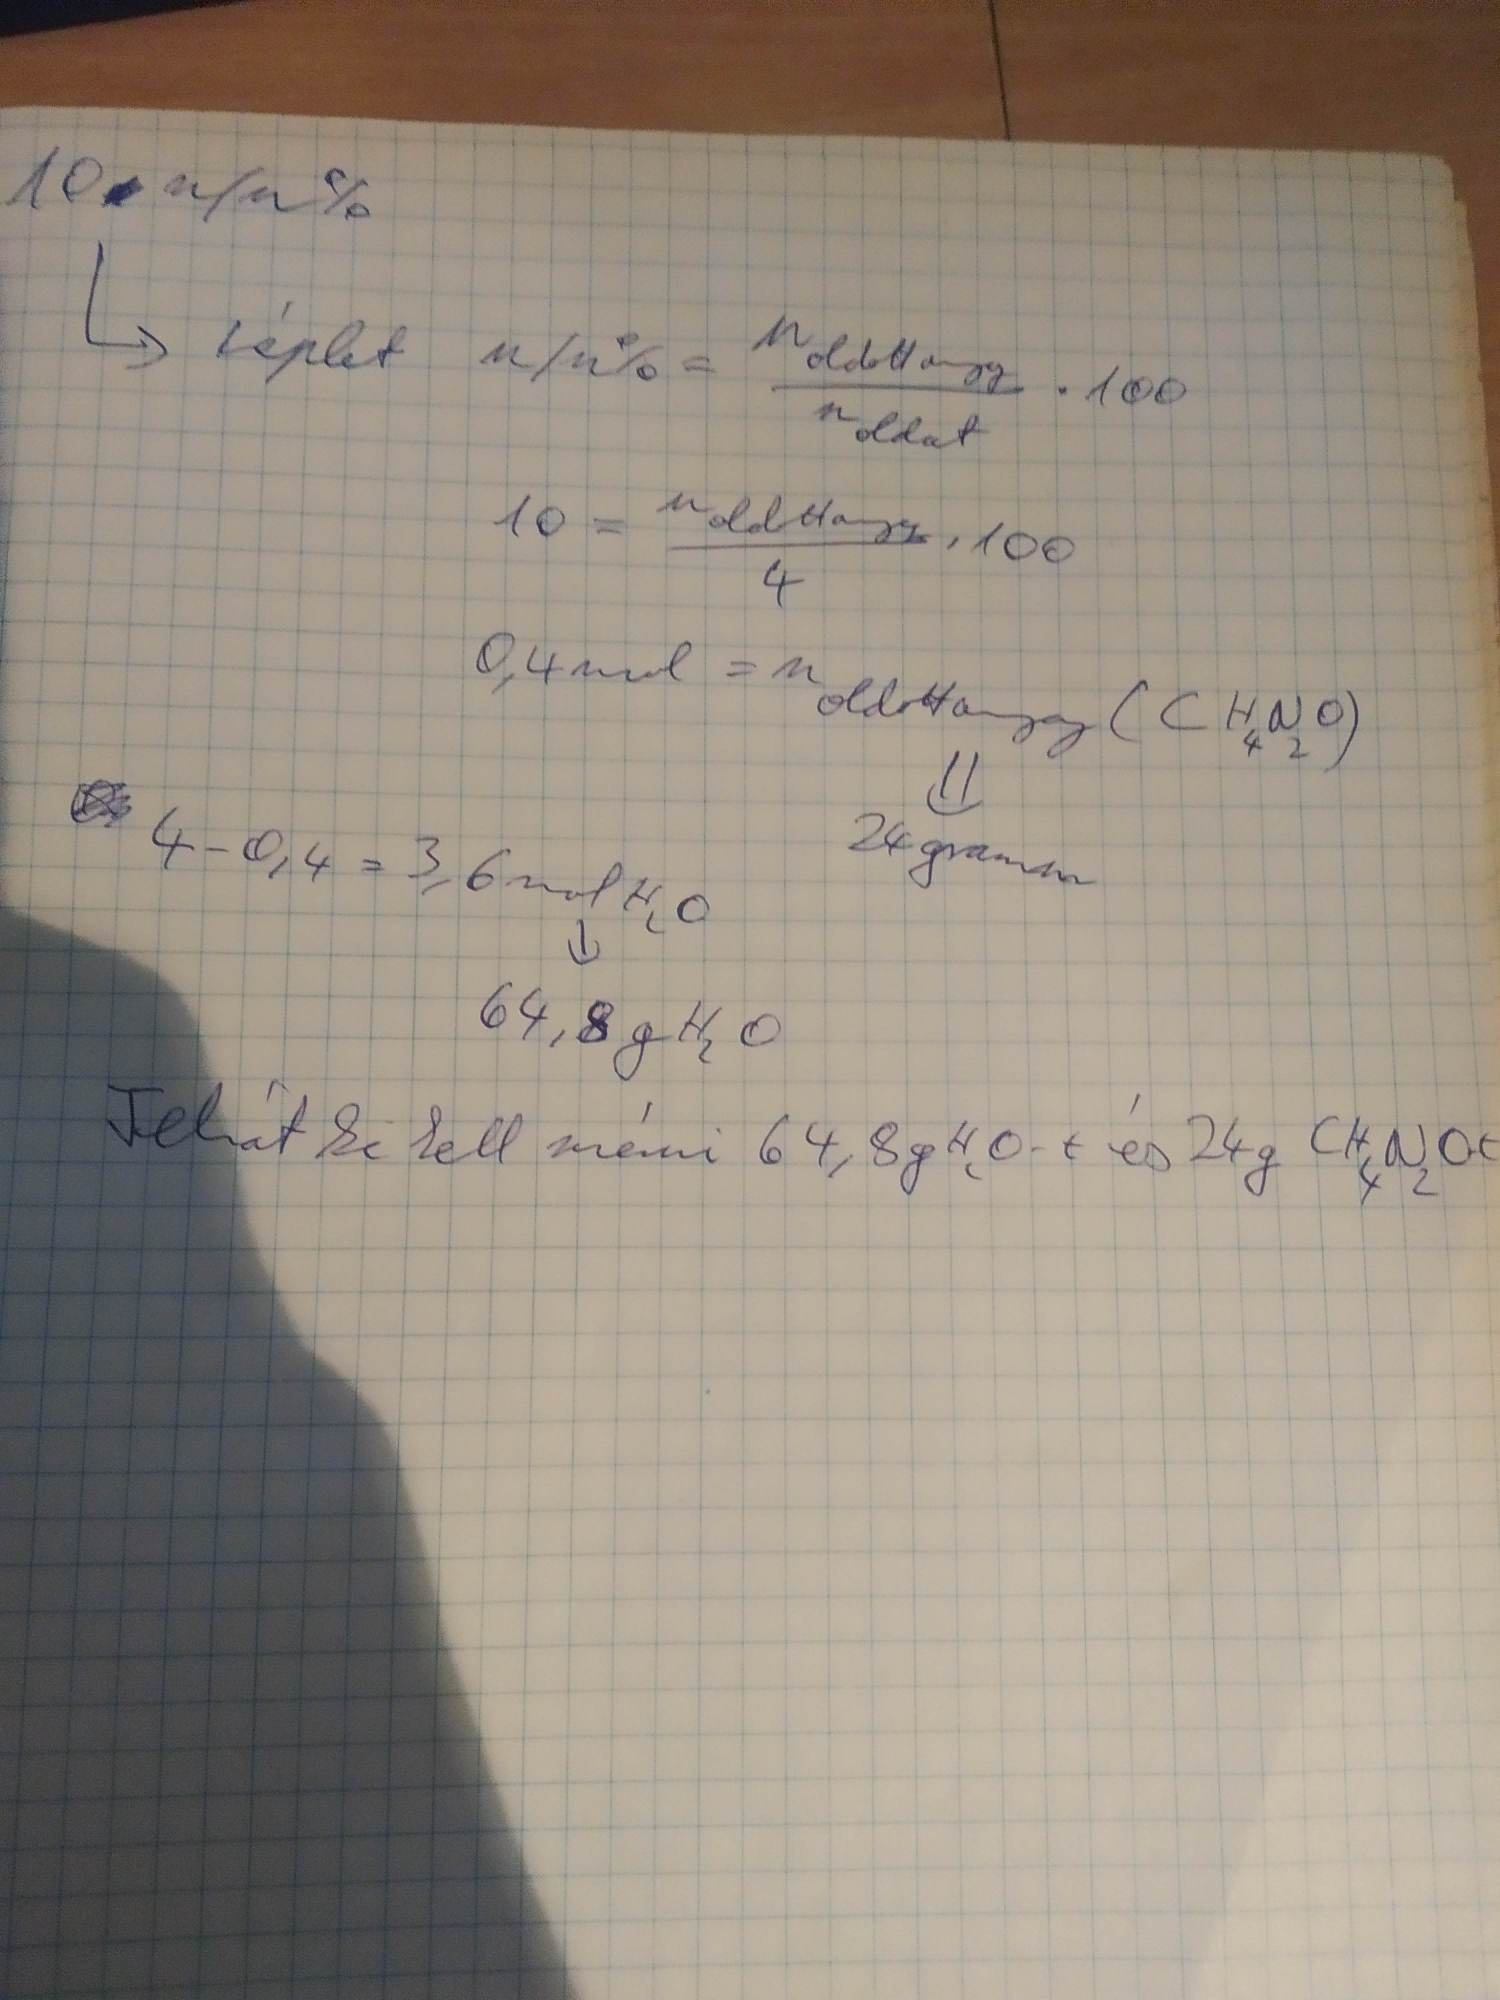 10 n/n%
képlet n/n% = n oldott anyag / n oldat · 100
10 = n oldott anyag / 4 · 100
0,4 mol = n oldott anyag (CH₄N₂O)
24 gramm
4 - 0,4 = 3,6 mol H₂O
64,8 g H₂O
Tehát ki kell mérni 64,8 g H₂O-t és 24 g CH₄N₂O-t